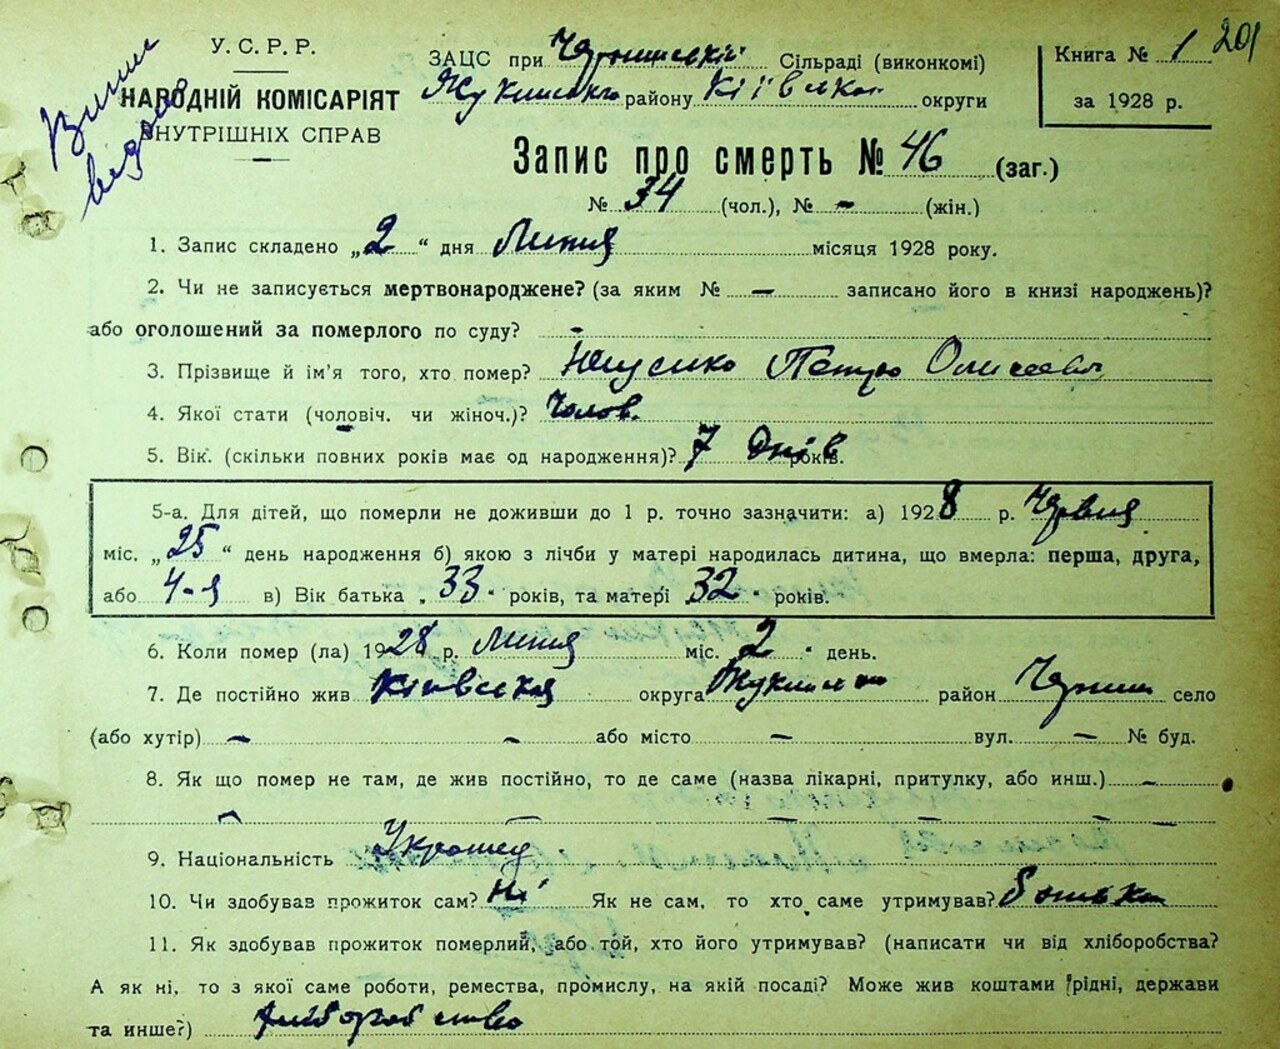 201
У. С. Р. Р.
НАРОДНІЙ КОМІСАРІЯТ
ВНУТРІШНІХ СПРАВ
ЗАЦС при Сільраді (виконкомі)
району Київська округи
Книга № 1
за 1928 р.
Запис про смерть № 46 (заг.)
№ 34 (чол.), № - (жін.)
1. Запис складено „2“ дня Липня місяця 1928 року.
2. Чи не записується мертвонароджене? (за яким № — записано його в книзі народжень)?
або оголошений за померлого по суду? -
3. Прізвище й ім'я того, хто помер? Петро
4. Якої стати (чоловіч. чи жіноч.)? Чолов.
5. Вік. (скільки повних років має од народження)? 7 Днів років.
5-а. Для дітей, що померли не доживши до 1 р. точно зазначити: а) 1928 р. Червня
міс. „25“ день народження б) якою з лічби у матері народилась дитина, що вмерла: перша, друга,
або 4-я в) Вік батька „33" років, та матері „32" років.
6. Коли помер (ла) 1928 р. Липня міс. 2 " день.
7. Де постійно жив Київська округа район село
(або хутір) - - або місто — вул. — № буд.
8. Як що помер не там, де жив постійно, то де саме (назва лікарні, притулку, або инш.) -
9. Національність
10. Чи здобував прожиток сам? Ні Як не сам, то хто саме утримував? Батько
11. Як здобував прожиток померлий, або той, хто його утримував? (написати чи від хліборобства?
А як ні, то з якої саме роботи, ремества, промислу, на якій посаді? Може жив коштами рідні, держави
та инше?) хліборобство